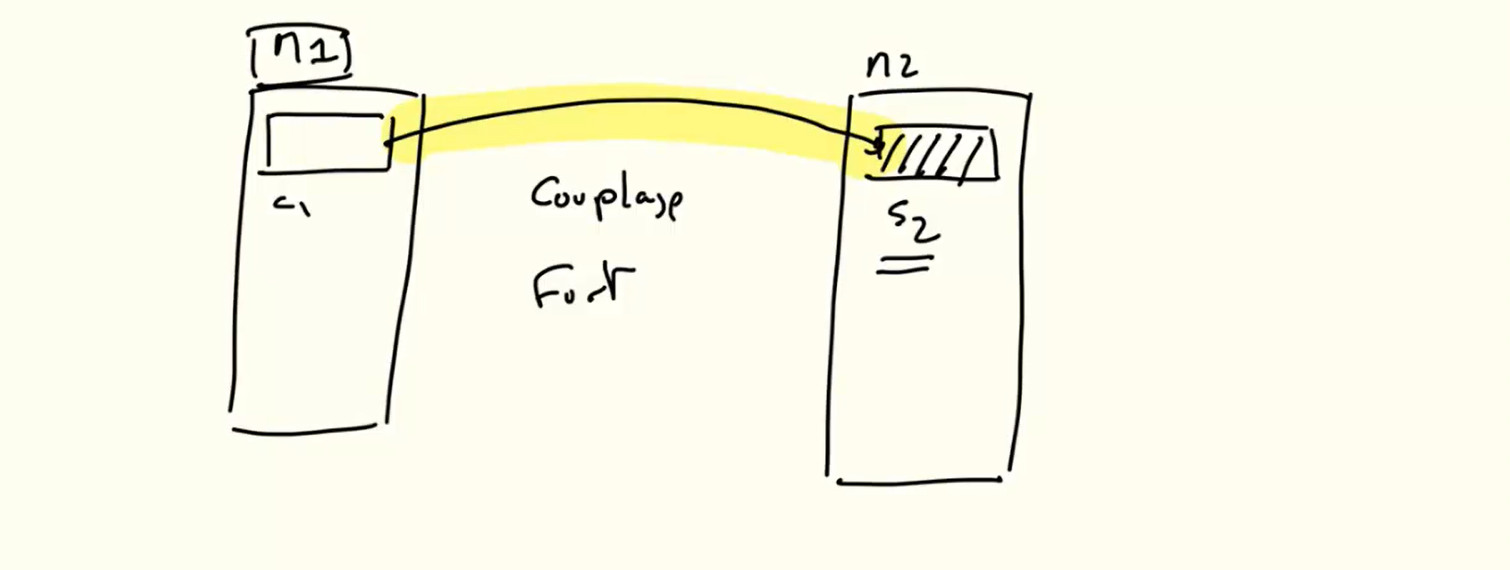 n1
n2
c1
Couplage
Fort
s2